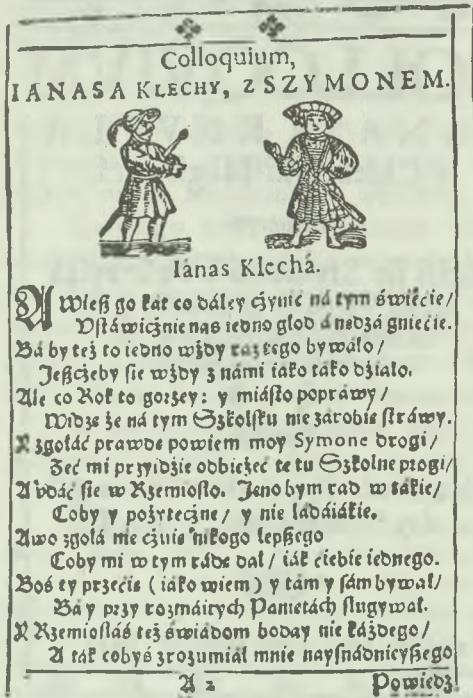 Colloquium,
IANASA KLECHY, Z SZYMONEM.
Iánas Klechá.
A Wieß go kat co dáley cżynić ná tym świećie/
Vstáwicżnie nas iedno głod á nędzá gniećie.
Bá by też to iedno wżdy raz tego bywáło/
Jeßcżeby sie wżdy z námi iáko táko dźiało.
Ale co Rok to gorzey: y miásto popráwy/
Widzę że ná tym Szkolsku nie zárobię stráwy.
A zgołáć prawdę powiem moy Symone drogi/
Zeć mi przyidźie odbieżeć te tu Szkolne progi/
A vdáć się w Rzemiosło. Jeno bym rad w tákie/
Coby y pożytecżne/ y nie ládáiákie.
Awo zgołá nie cżuię nikogo lepßego
Coby mi w tym rádę dał/ iák ciebie iednego.
Boś ty przecię (iáko wiem) y tám y sám bywał/
Bá y przy rozmáitych Pániętách sługywał.
A Rzemiosłáś też świádom boday nie káżdego/
A ták cobyś zrozumiał mnie naysnádnieyßego
A 2
Powiedz